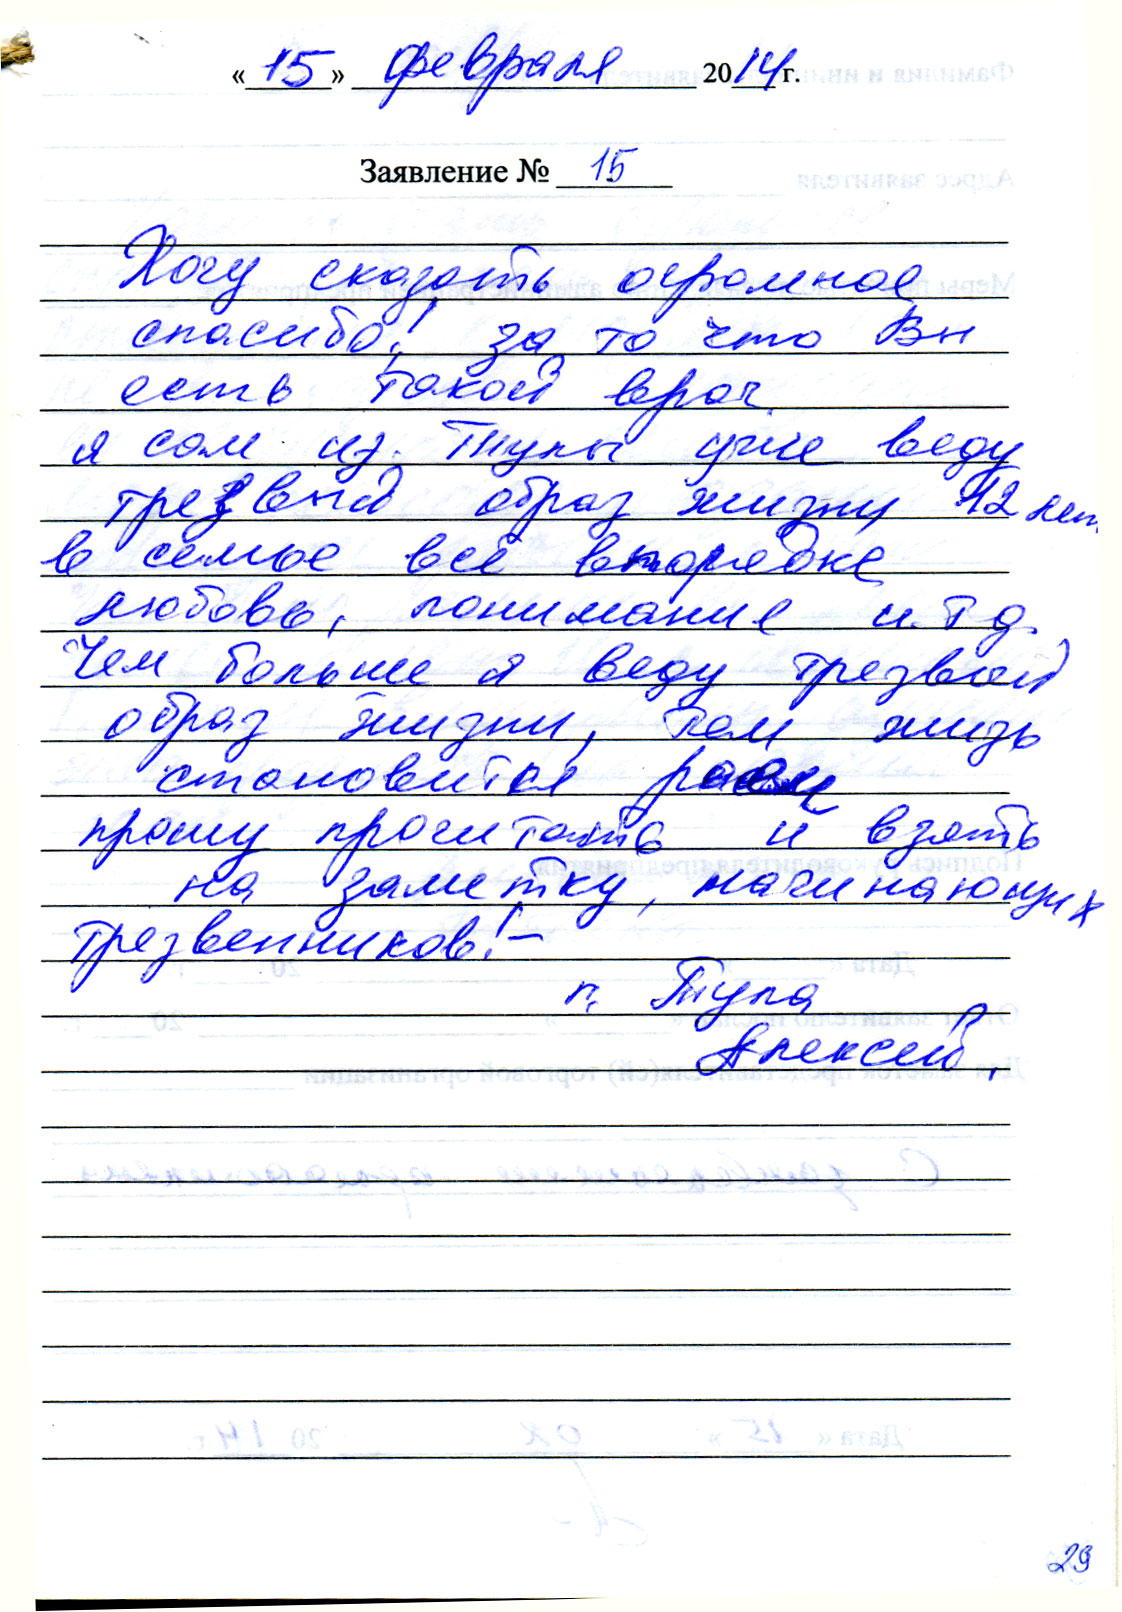 « 15 » февраля 2014 г.
Заявление № 15
Хочу сказать огромное
спасибо! за то что Вы
есть такой врач.
я сам из. Тулы уже веду
трезвый образ жизни 12 лет
в семье всё в порядке
любовь, понимание и.т д.
Чем больше я веду трезвый
образ жизни, тем жизь
становится
прошу прочитать и взять
на заметку, начинающих
трезвенников! –
г. Тула
Алексей,
29